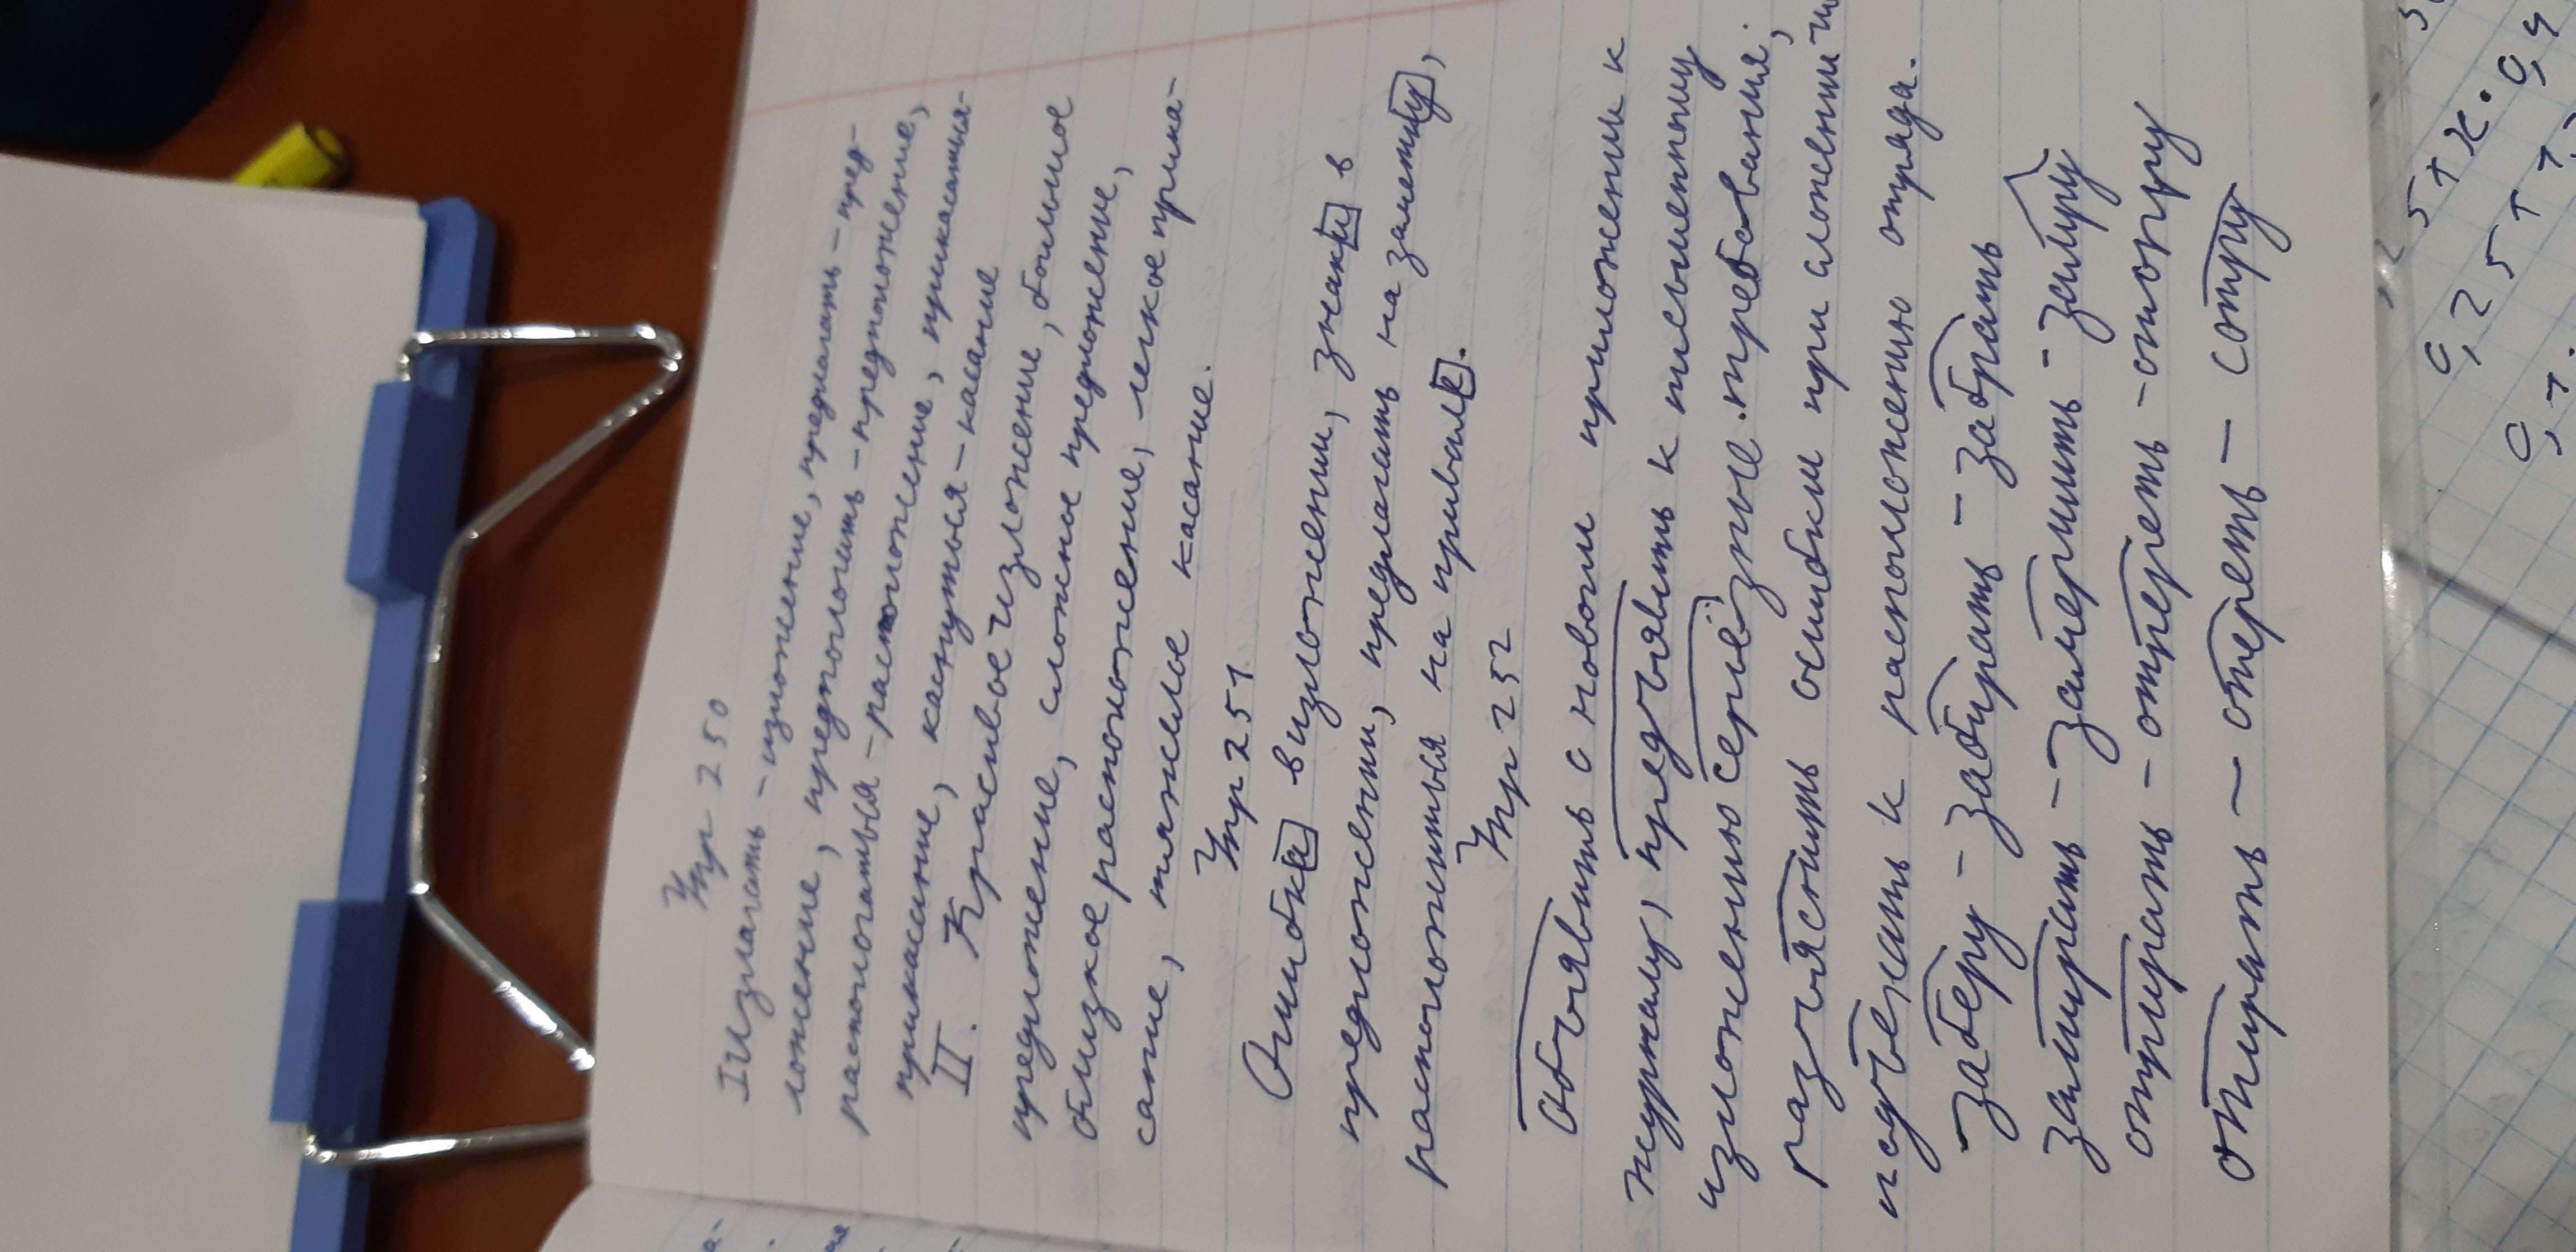 Упр 250
I Излагать - изложение, предлагать - пред-
ложение, предположить - предположение,
распологаться - расположение, прикасатья-
прикасание, каснуться - касание
II. Красивое изложение, большое
предложение, сложное предложение,
близкое расположение, легкое прика-
сание, тяжелое касание.
Упр 251
Ошибки в изложении, знаки в
предложении, предлагать на заметку,
расположиться на привале.
Упр 252
Объявить о новом приложении к
журналу, предъявить к письменному
изложению серьёзные требования;
разъяснить ошибки при сложении чи
подъехать к расположению отряда.
Заберу - забирать - забрать
замирать - замерить - замру
отпирать - отпереть - отопру
отирать - отереть - сотру
5+x·0,4
0,25+